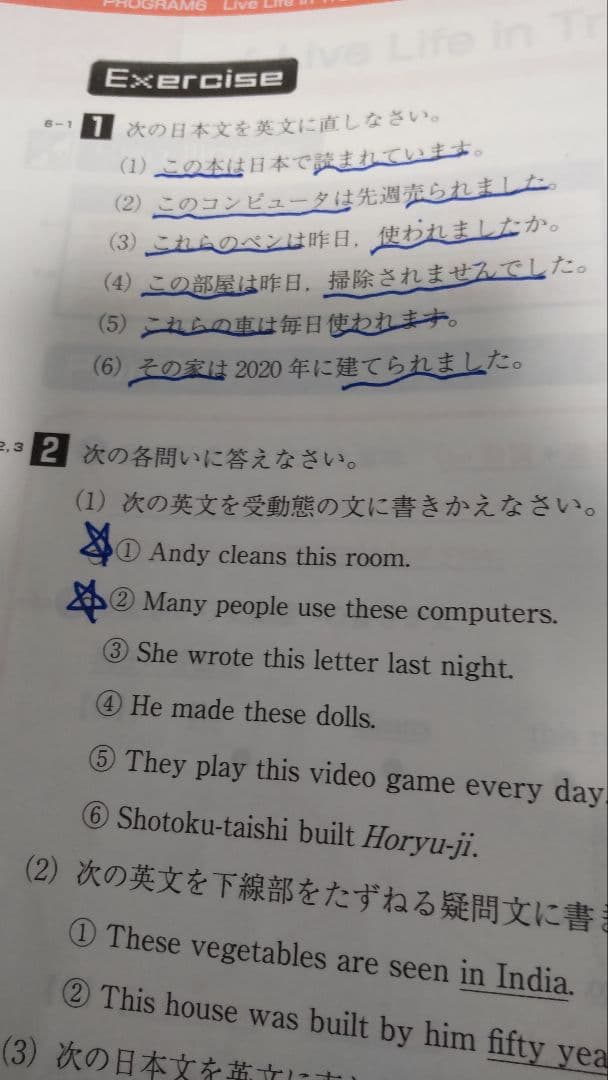 PROGRAM6 Live Life in
Exercise
6-1 1 次の日本文を英文に直しなさい。
(1) この本は日本で読まれています。
(2) このコンピュータは先週売られました。
(3) これらのペンは昨日,使われましたか。
(4) この部屋は昨日,掃除されませんでした。
(5) これらの車は毎日使われます。
(6) その家は 2020 年に建てられました。
2,3 2 次の各問いに答えなさい。
(1) 次の英文を受動態の文に書きかえなさい。
① Andy cleans this room.
② Many people use these computers.
③ She wrote this letter last night.
④ He made these dolls.
⑤ They play this video game every day.
⑥ Shotoku-taishi built Horyu-ji.
(2) 次の英文を下線部をたずねる疑問文に書き
① These vegetables are seen in India.
② This house was built by him fifty
(3) 次の日本文を英文に